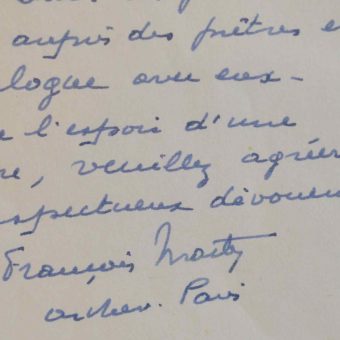 auprès des prêtres e
logue avec eux -
l'espoir d'une
re, veuillez agréer
spectueux dévouem
François Marty
archev. Paris